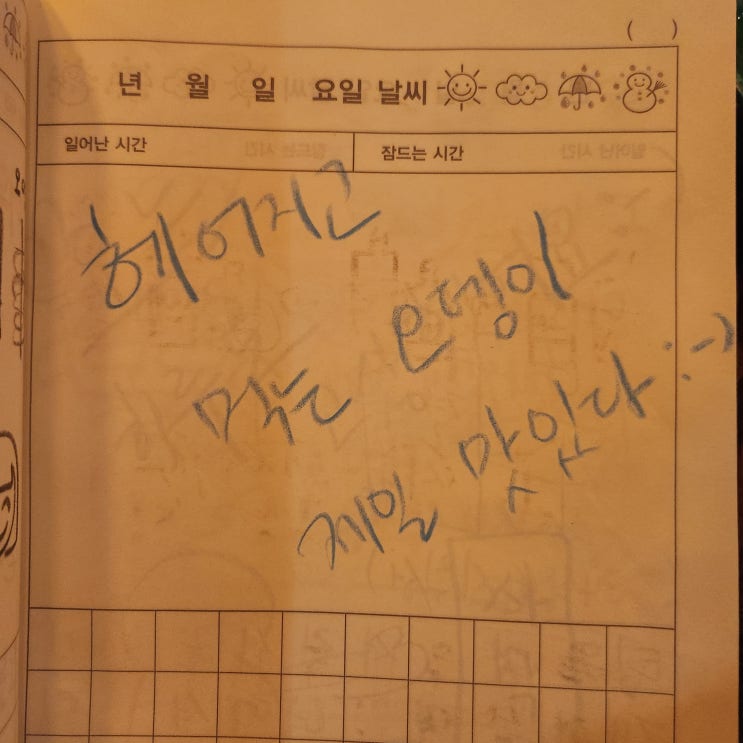 ( )
년 월 일 요일 날씨
일어난 시간 잠드는 시간
헤어지고
먹는 오뎅이
제일 맛있다 :-)